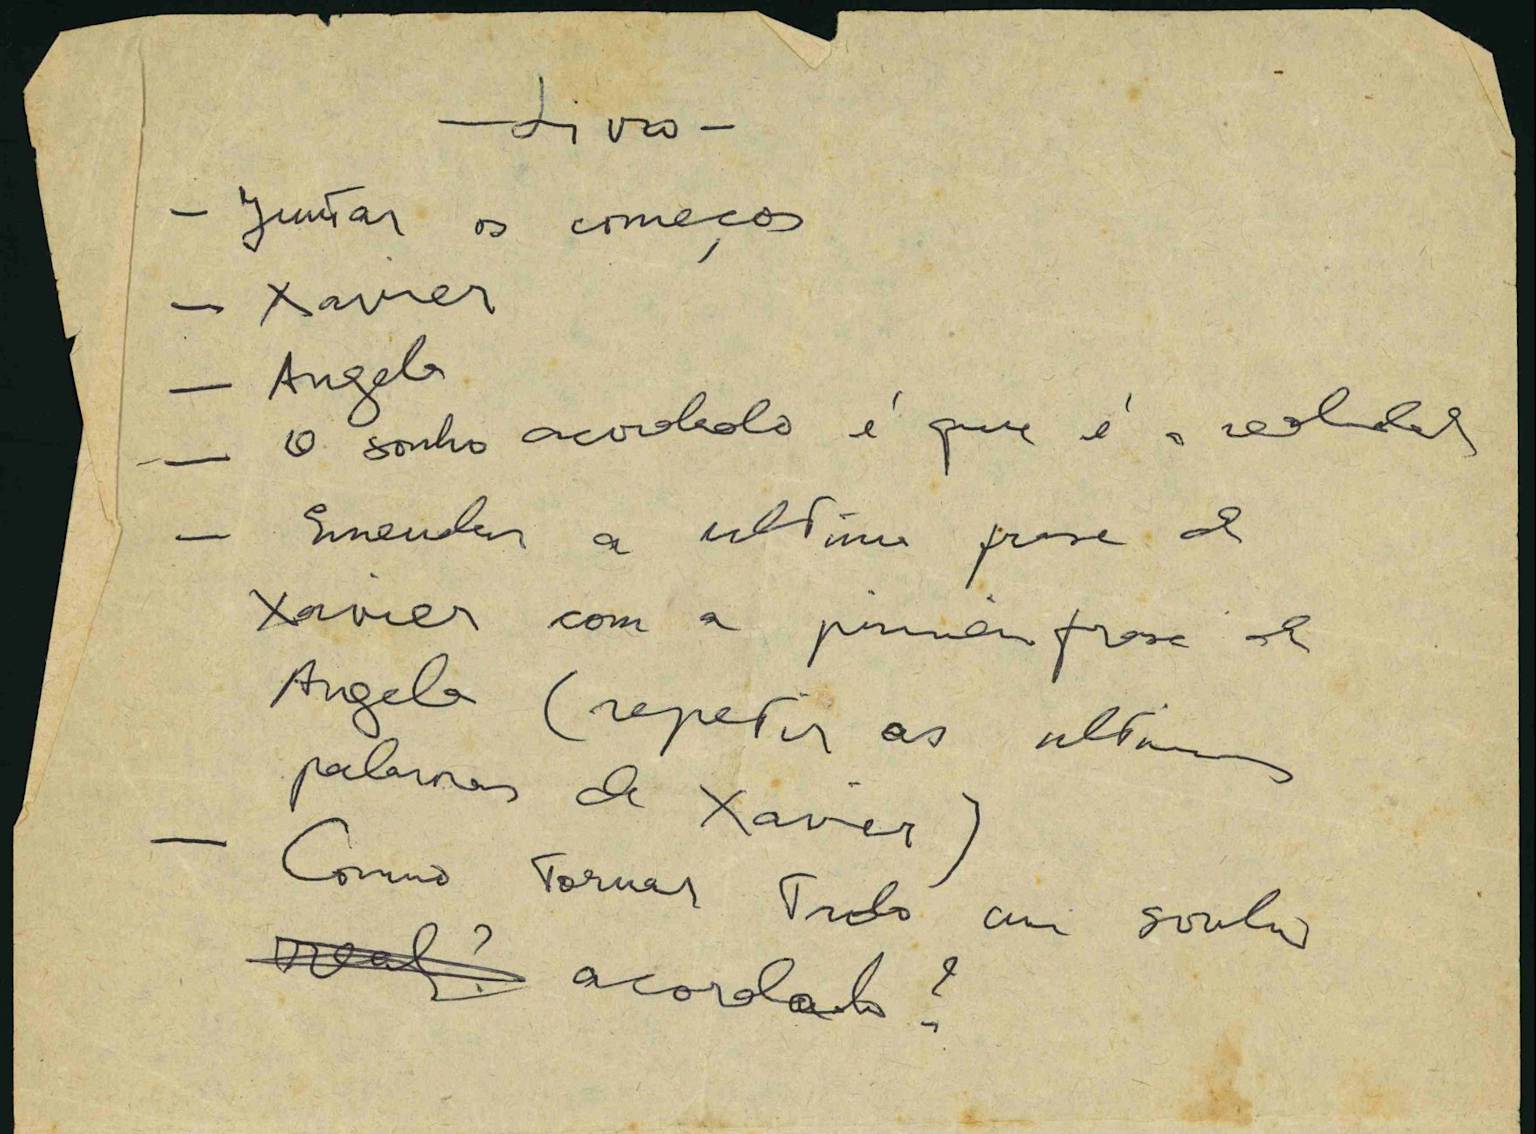 — Livro —
— Juntar os começos
— Xavier
— Angela
— O sonho acordado é que é a realidade
— Emendar a ultima frase de
Xavier com a primeira frase de
Angela (repetir as ultimas
palavras de Xavier)
— Como tornar tudo um sonho
real? acordado?